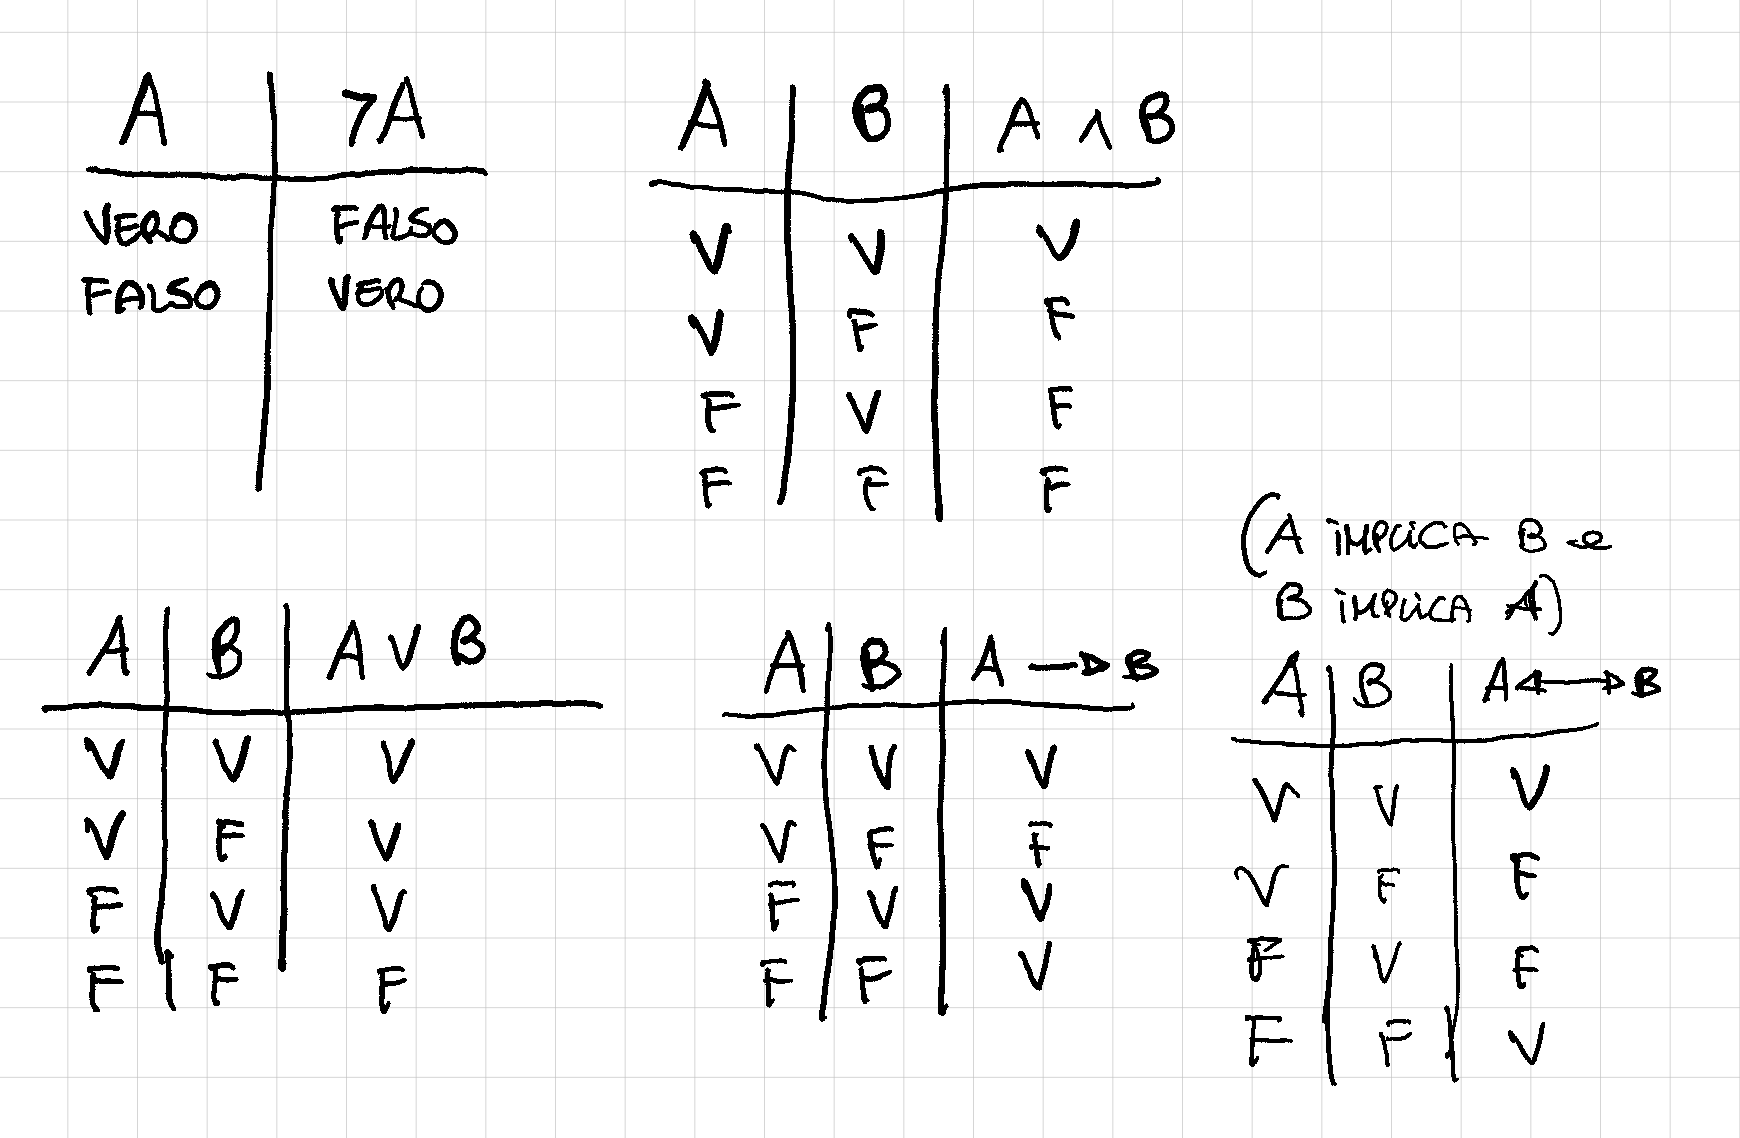 A | ¬A
VERO | FALSO
FALSO | VERO
A | B | A ∧ B
V | V | V
V | F | F
F | V | F
F | F | F
A | B | A ∨ B
V | V | V
V | F | V
F | V | V
F | F | F
A | B | A → B
V | V | V
V | F | F
F | V | V
F | F | V
(A iMPLiCA B e
B iMPLiCA A)
A | B | A ↔ B
V | V | V
V | F | F
F | V | F
F | F | V